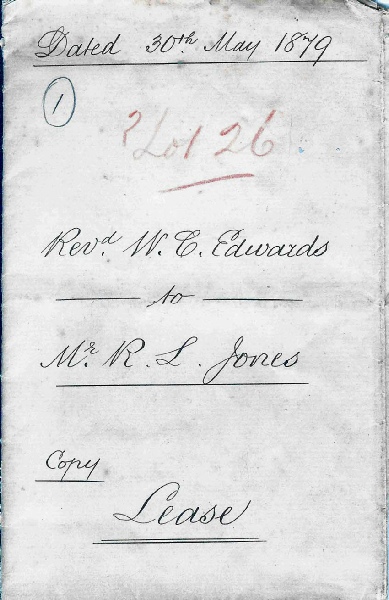 Dated 30th May 1879
1
? Lot 26
Revd. W. C. Edwards
to
Mr. R. L. Jones
Copy
Lease